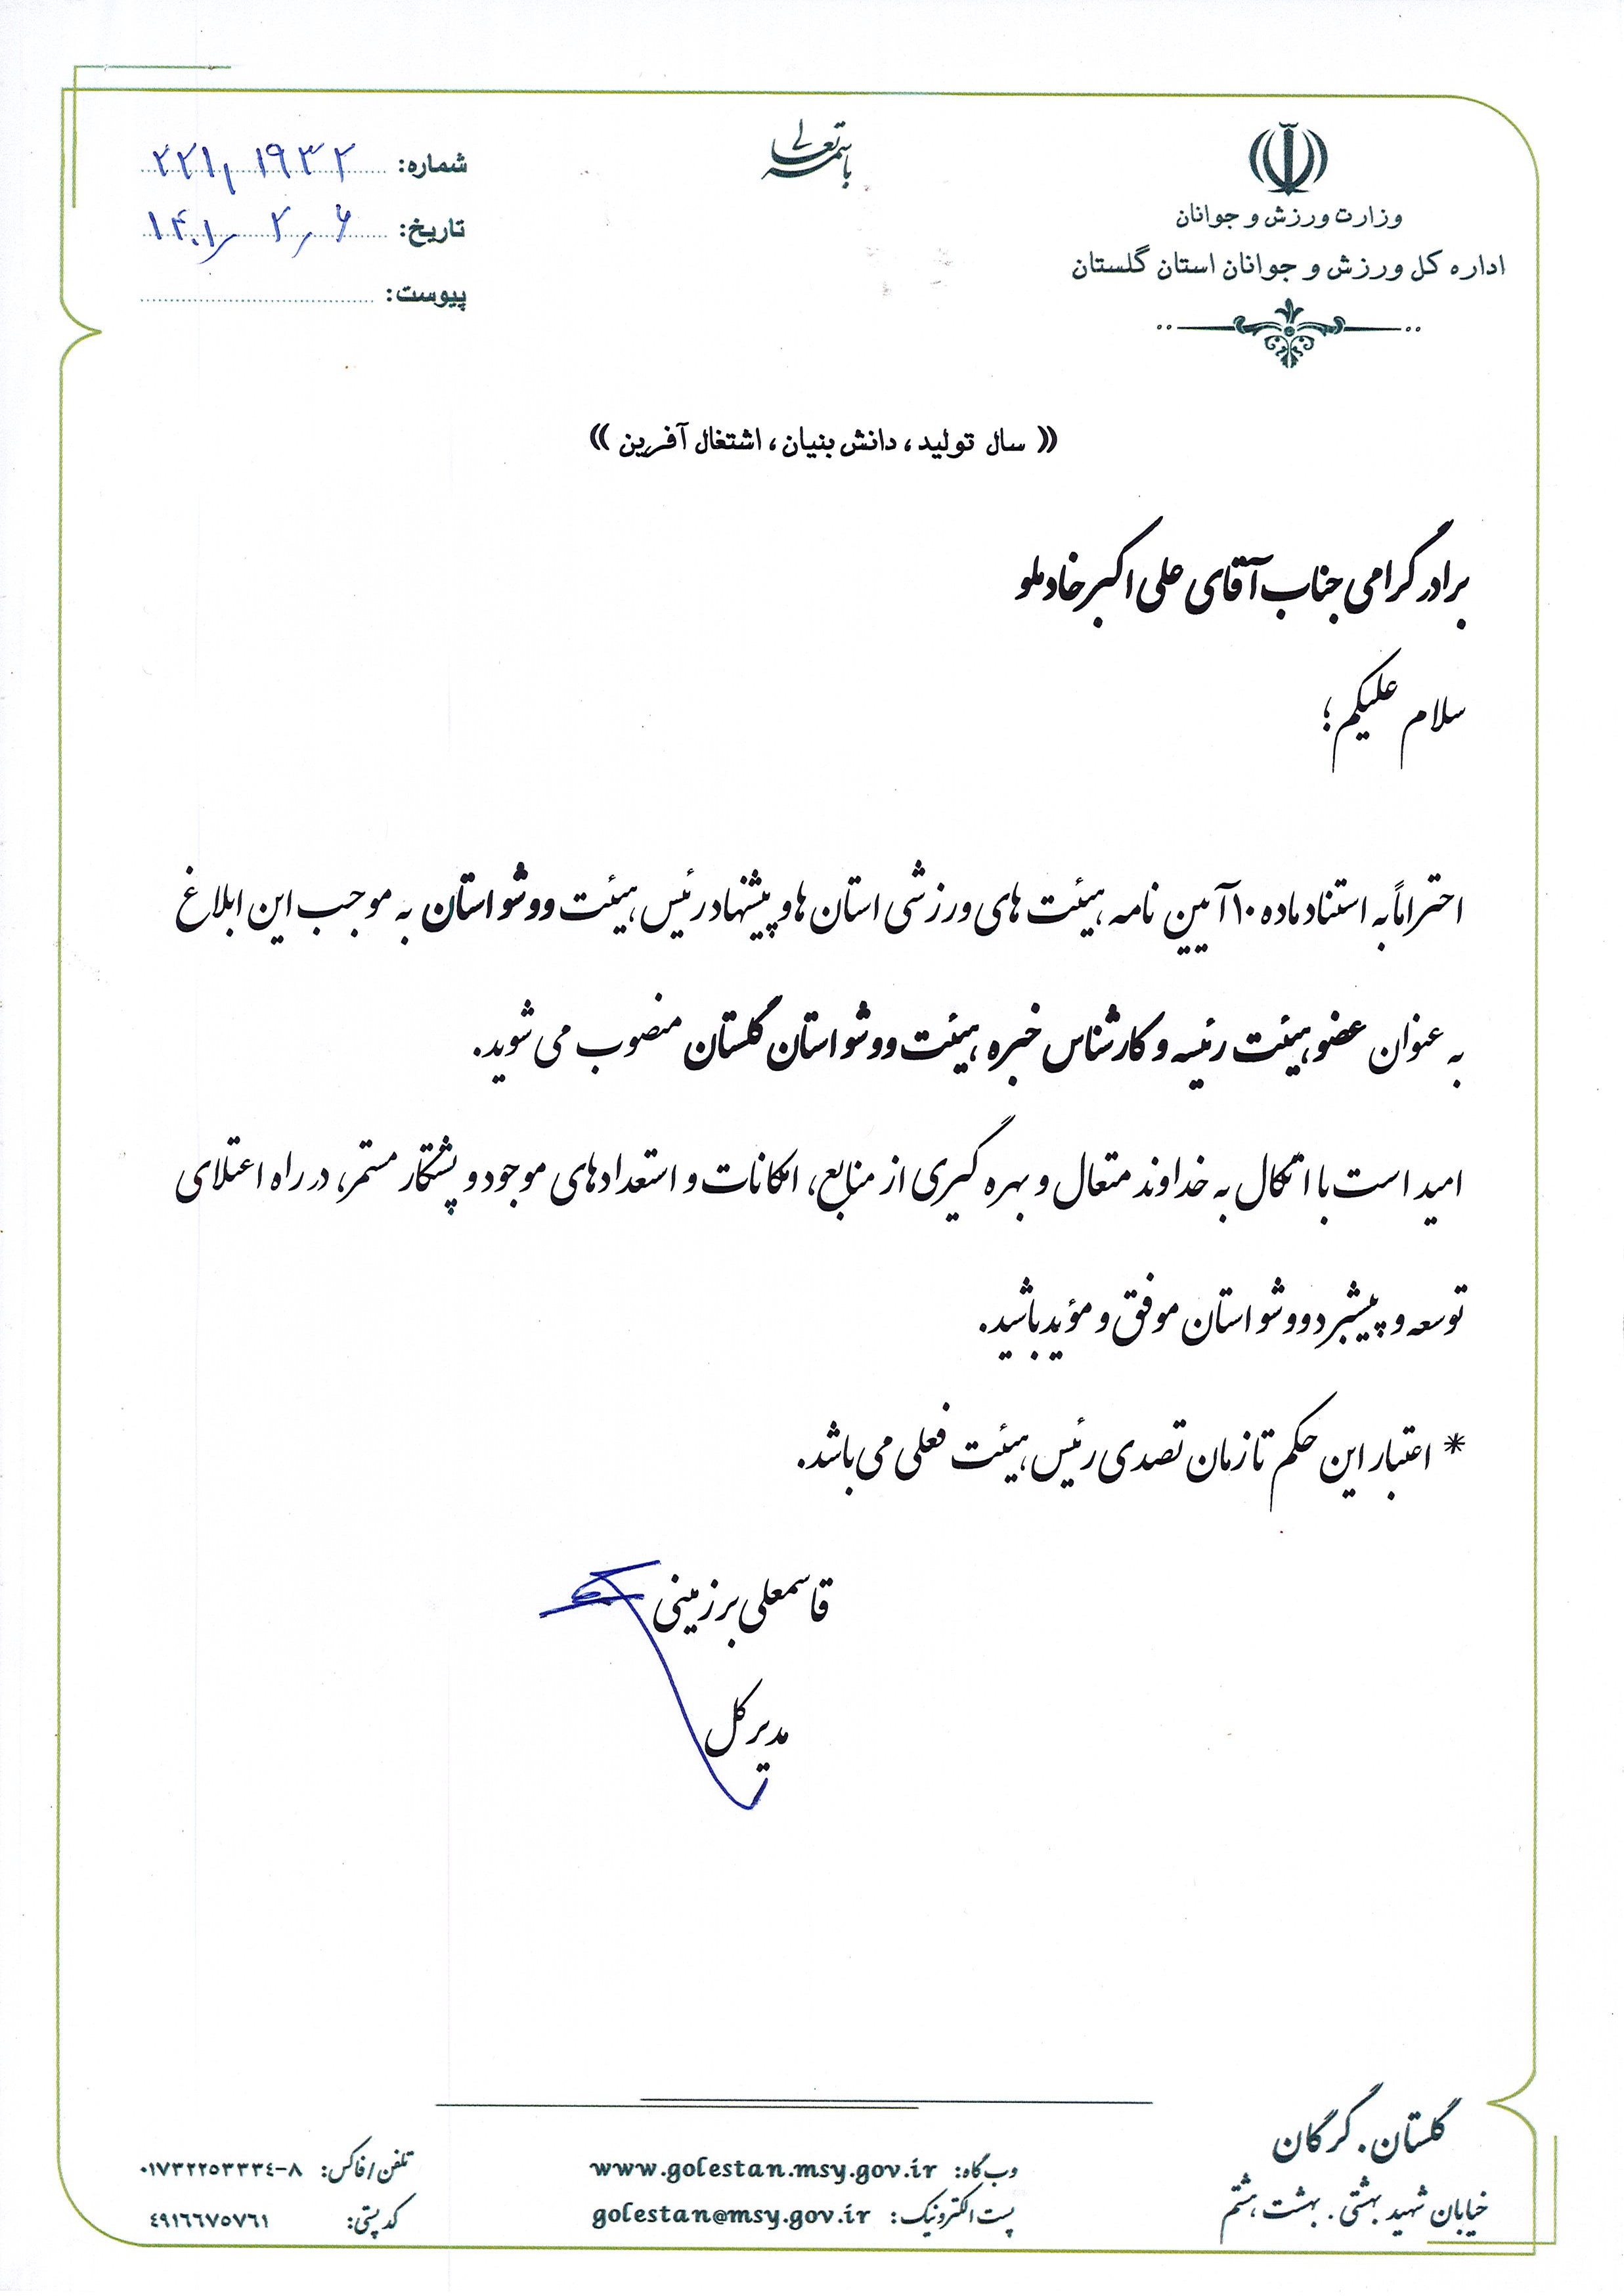 باسمه تعالی
وزارت ورزش و جوانان
اداره کل ورزش و جوانان استان گلستان
شماره: ۲۲۱/۱۹۳۲
تاریخ: ۱۴۰۱/۲/۶
پیوست:
« سال تولید، دانش بنیان، اشتغال آفرین »
برادر گرامی جناب آقای علی اکبر خادملو
سلام علیکم؛
احتراماً به استناد ماده ۱۰ آیین نامه هیئت های ورزشی استان ها و پیشنهاد رئیس هیئت ووشو استان به موجب این ابلاغ
به عنوان عضو هیئت رئیسه و کارشناس خبره هیئت ووشو استان گلستان منصوب می شوید.
امید است با اتکال به خداوند متعال و بهره گیری از منابع، امکانات و استعدادهای موجود و پشتکار مستمر، در راه اعتلای
توسعه و پیشبرد ووشو استان موفق و مؤید باشید.
* اعتبار این حکم تا زمان تصدی رئیس هیئت فعلی می باشد.
قاسمعلی برزمینی
مدیر کل
گلستان. گرگان
خیابان شهید بهشتی. بهشت هشتم
وب گاه: www.golestan.msy.gov.ir
پست الکترونیک: golestan@msy.gov.ir
تلفن/فاکس: ۰۱۷۳۲۲۵۳۳۳٤-۸
کد پستی: ٤۹۱٦٦۷۵۷٦۱